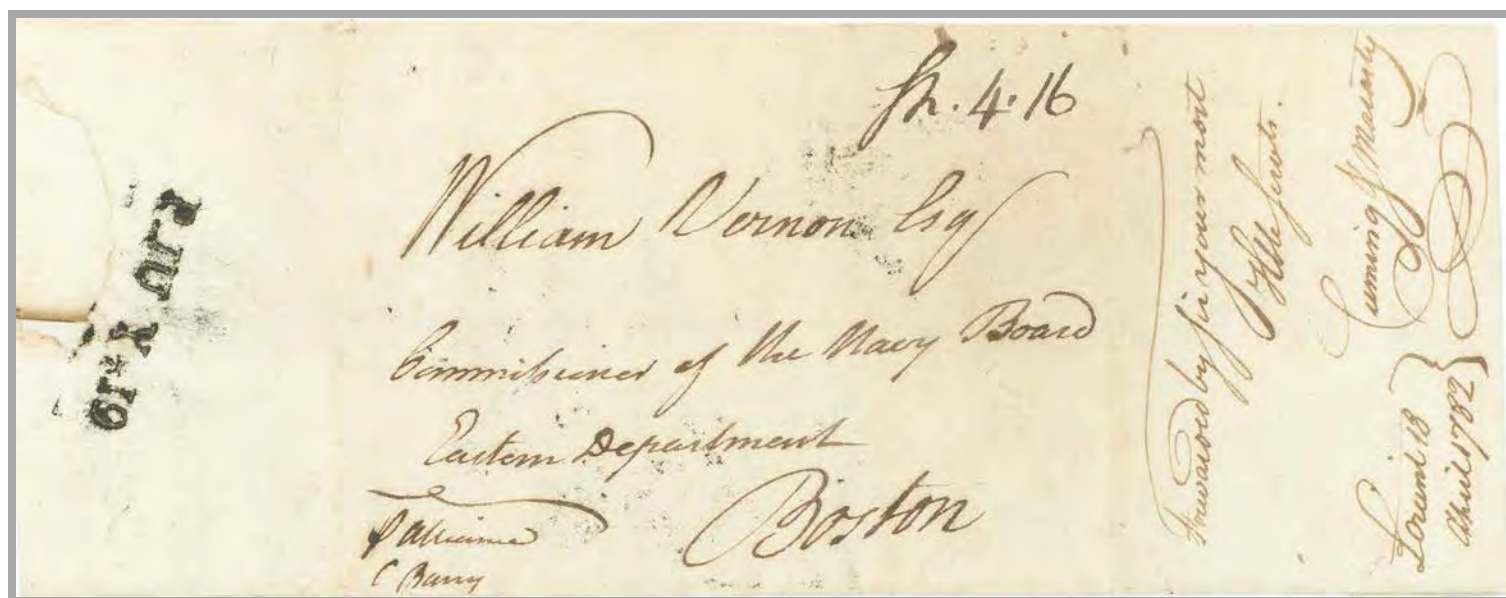 Sh. 4. 16
William Vernon Esq
Commissioner of the Navy Board
Eastern Department
Boston
p Alliance
C Barry
Forwarded by sir your most
Hble Servts.
Cuming & Macarty
Lorient 18
April 1782
IUY * 19